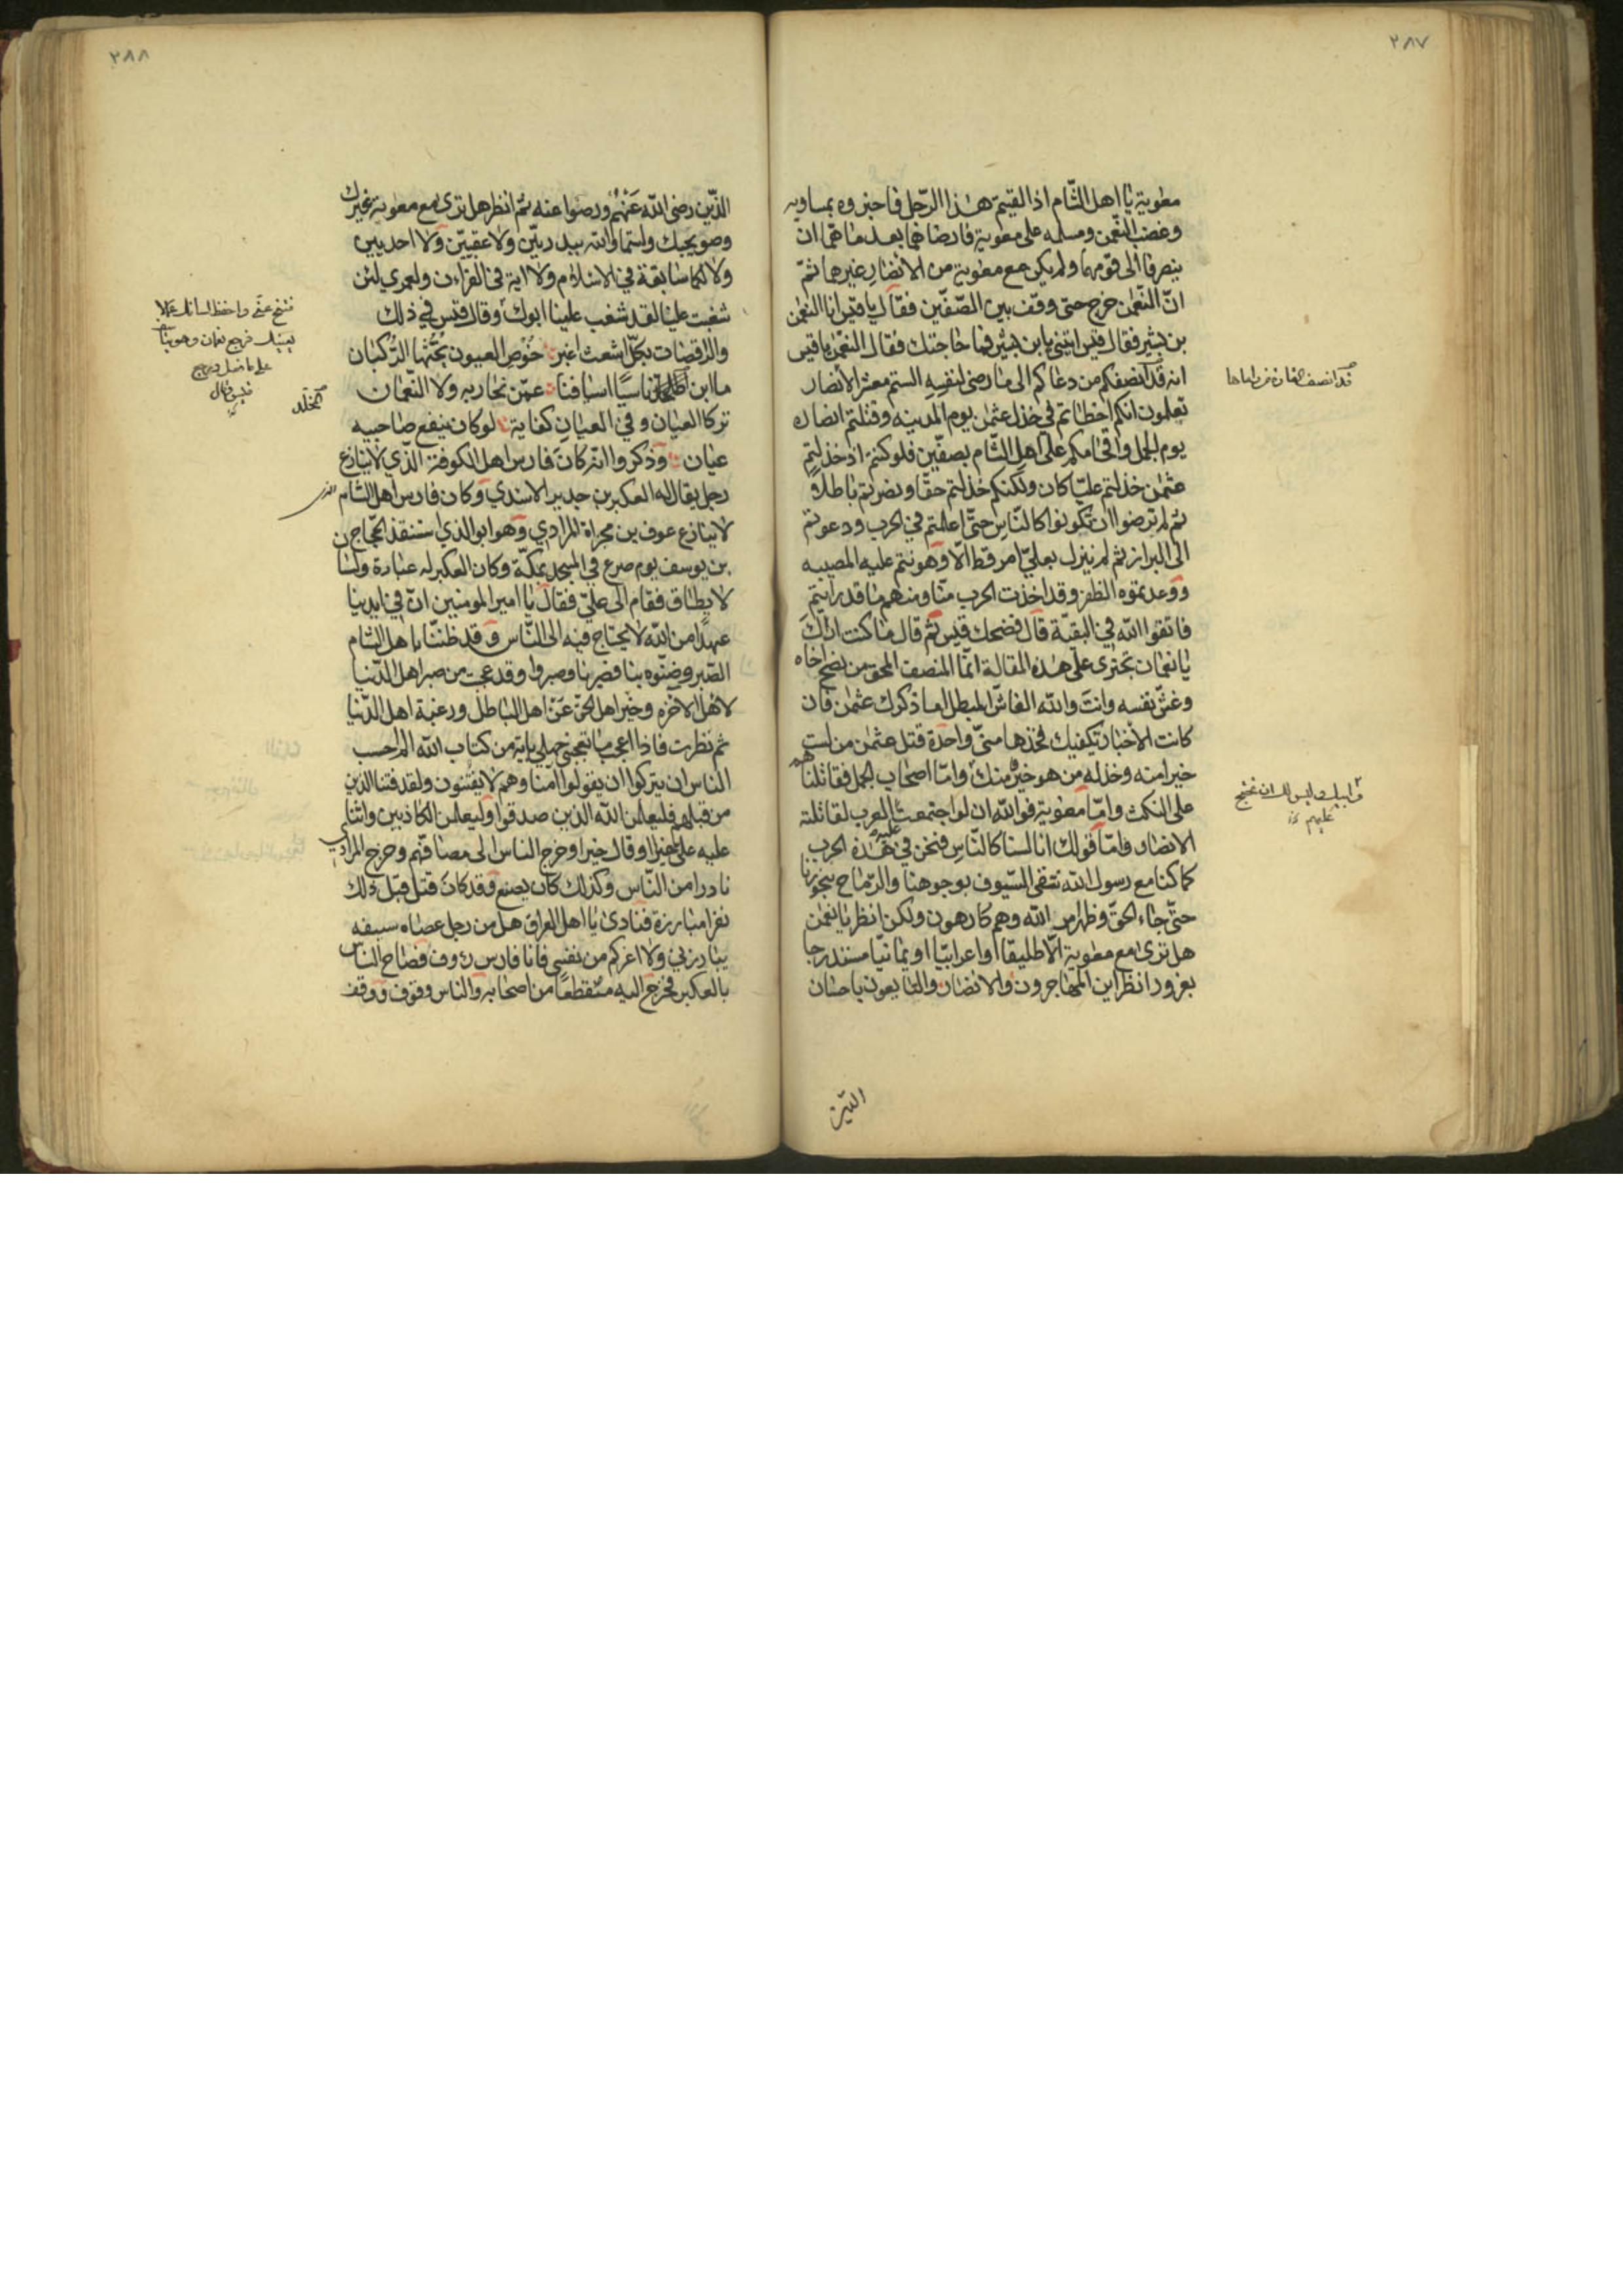 ٣٨٧
معوية يا اهل الشّام اذا لقيتم هذا الرّجل فاخبروه بمساويه
وغضب النّعمن ومسلمه على معوية فارضاهما بعد ما همّا ان
ينصرفا الى قومهما ولم يكن مع معوية من الانصار غيرهما ثمّ
انّ النّعمن خرج حتى وقف بين الصّفّين فقال يا قيس انا النعمن
بن بشير فقال قيس يا بن بشير فما حاجتك فقال النعمن يا قيس
انه قد انصفكم من دعاكم الى ما رضى لنفسه الستم معشر الانصار
تعلمون انكم اخطاتم في خذل عثمن يوم المدينه وقتلتم انصاره
يوم الجمل واقحامكم على اهل الشّام بصفّين فلو كنتم اذ خذلتم
عثمن خذلتم عليّا كان ولكنكم خذلتم حقّا ونصرتم باطلا
ثم لم ترضوا ان تكونوا كالنّاس حتّى اعلمتم في الحرب ودعوتم
الى البراز ثم لم ينزل بعليّ امر قط الّا وهونتم عليه المصيبه
ووعدتموه الظفر وقد اخذت الحرب منّا ومنهم ما قد رايتم
فاتقوا الله في البقيّة قال فضحك قيس ثم قال ما كنت اراك
يا نعمان تجترى على هذه المقالة انّما المنصف المحق من نصح اخاه
وغشّ نفسه وانت والله الغاشّ المبطل اما ذكرك عثمن فان
كانت الاخبار تكفيك فخذها منّي واحدة قتل عثمن من لست
خيرا منه وخذله من هو خير منك وامّا اصحاب الجمل فقاتلناهم
على النكث وامّا معوية فوالله ان لو اجتمعت عليه العرب لقاتلته
الانصار وامّا قولك انا لسنا كالنّاس فنحن في هذه الحرب
كما كنا مع رسول الله نتقى السّيوف بوجوهنا والرّماح بنحورنا
حتّى جاء الحقّ وظهر امر الله وهم كارهون ولكن انظر يا نعمن
هل ترى مع معوية الّا طليقا او اعرابيّا او يمانيّا مستدرجا
بغرور انظر اين المهاجرون والانصار والتابعون باحسان
الذين
٣٨٨
الذّين رضى الله عنهم ورضوا عنه ثم انظر هل ترى مع معوية غيرك
وصويحبك ولستما والله ببدريّين ولا عقبيّين ولا احديين
ولا لكما سابقة في الاسلام ولا اية في القراءن ولعمرى لئن
شغبت علينا لقد شغب علينا ابوك وقال قيس في ذلك
والراقصات بكلّ اشعث اغبر خوص العيون تحثّها الرّكبان
ما ابن المخلد ناسيًا اسيافنا عمّن نحاربه ولا النّعمان
تركا العيان وفي العيان كفاية لو كان ينفع صاحبيه
عيان وذكروا انه كان فارس اهل الكوفة الّذي لا ينازع
رجل يقال له العكبر بن جدير الاسدي وكان فارس اهل الشام الذي
لا ينازع عوف بن مجزاة المرادي وهو ابو الذي استنقذ الحجّاج
بن يوسف يوم صرع في المسجد بمكّة وكان العكبر له عبادة ولسان
لا يطاق فقام الى عليّ فقال يا امير المومنين انّ في ايدينا
عهدًا من الله لا يحتاج فيه الى النّاس وقد ظننّا باهل الشام
الصّبر وظنّوه بنا فصبرنا وصبروا وقد عجبت من صبر اهل الدّنيا
لاهل الاخره وصبر اهل الحقّ على اهل الباطل ورغبة اهل الدّنيا
ثم نظرت فاذا اعجب ما يعجبني جهلي باية من كتاب الله الم احسب
الناس ان يتركوا ان يقولوا امنا وهم لا يفتنون ولقد فتنا الذين
من قبلهم فليعلمن الله الذين صدقوا وليعلمن الكاذبين واثنى
عليه علىّ خيرا وقال خيرا وخرج الناس الى مصافّهم وخرج المرادي
نادرا من النّاس وكذلك كان يصنع وقد كان قتل قبل ذلك
نفرا مبارزة فنادى يا اهل العراق هل من رجل عصاه سيفه
يبارزني ولا اغركم من نفسى فانا فارس زوف فصاح الناس
بالعكبر فخرج اليه منقطعًا من اصحابه والناس وقوف ووقف
المخلد